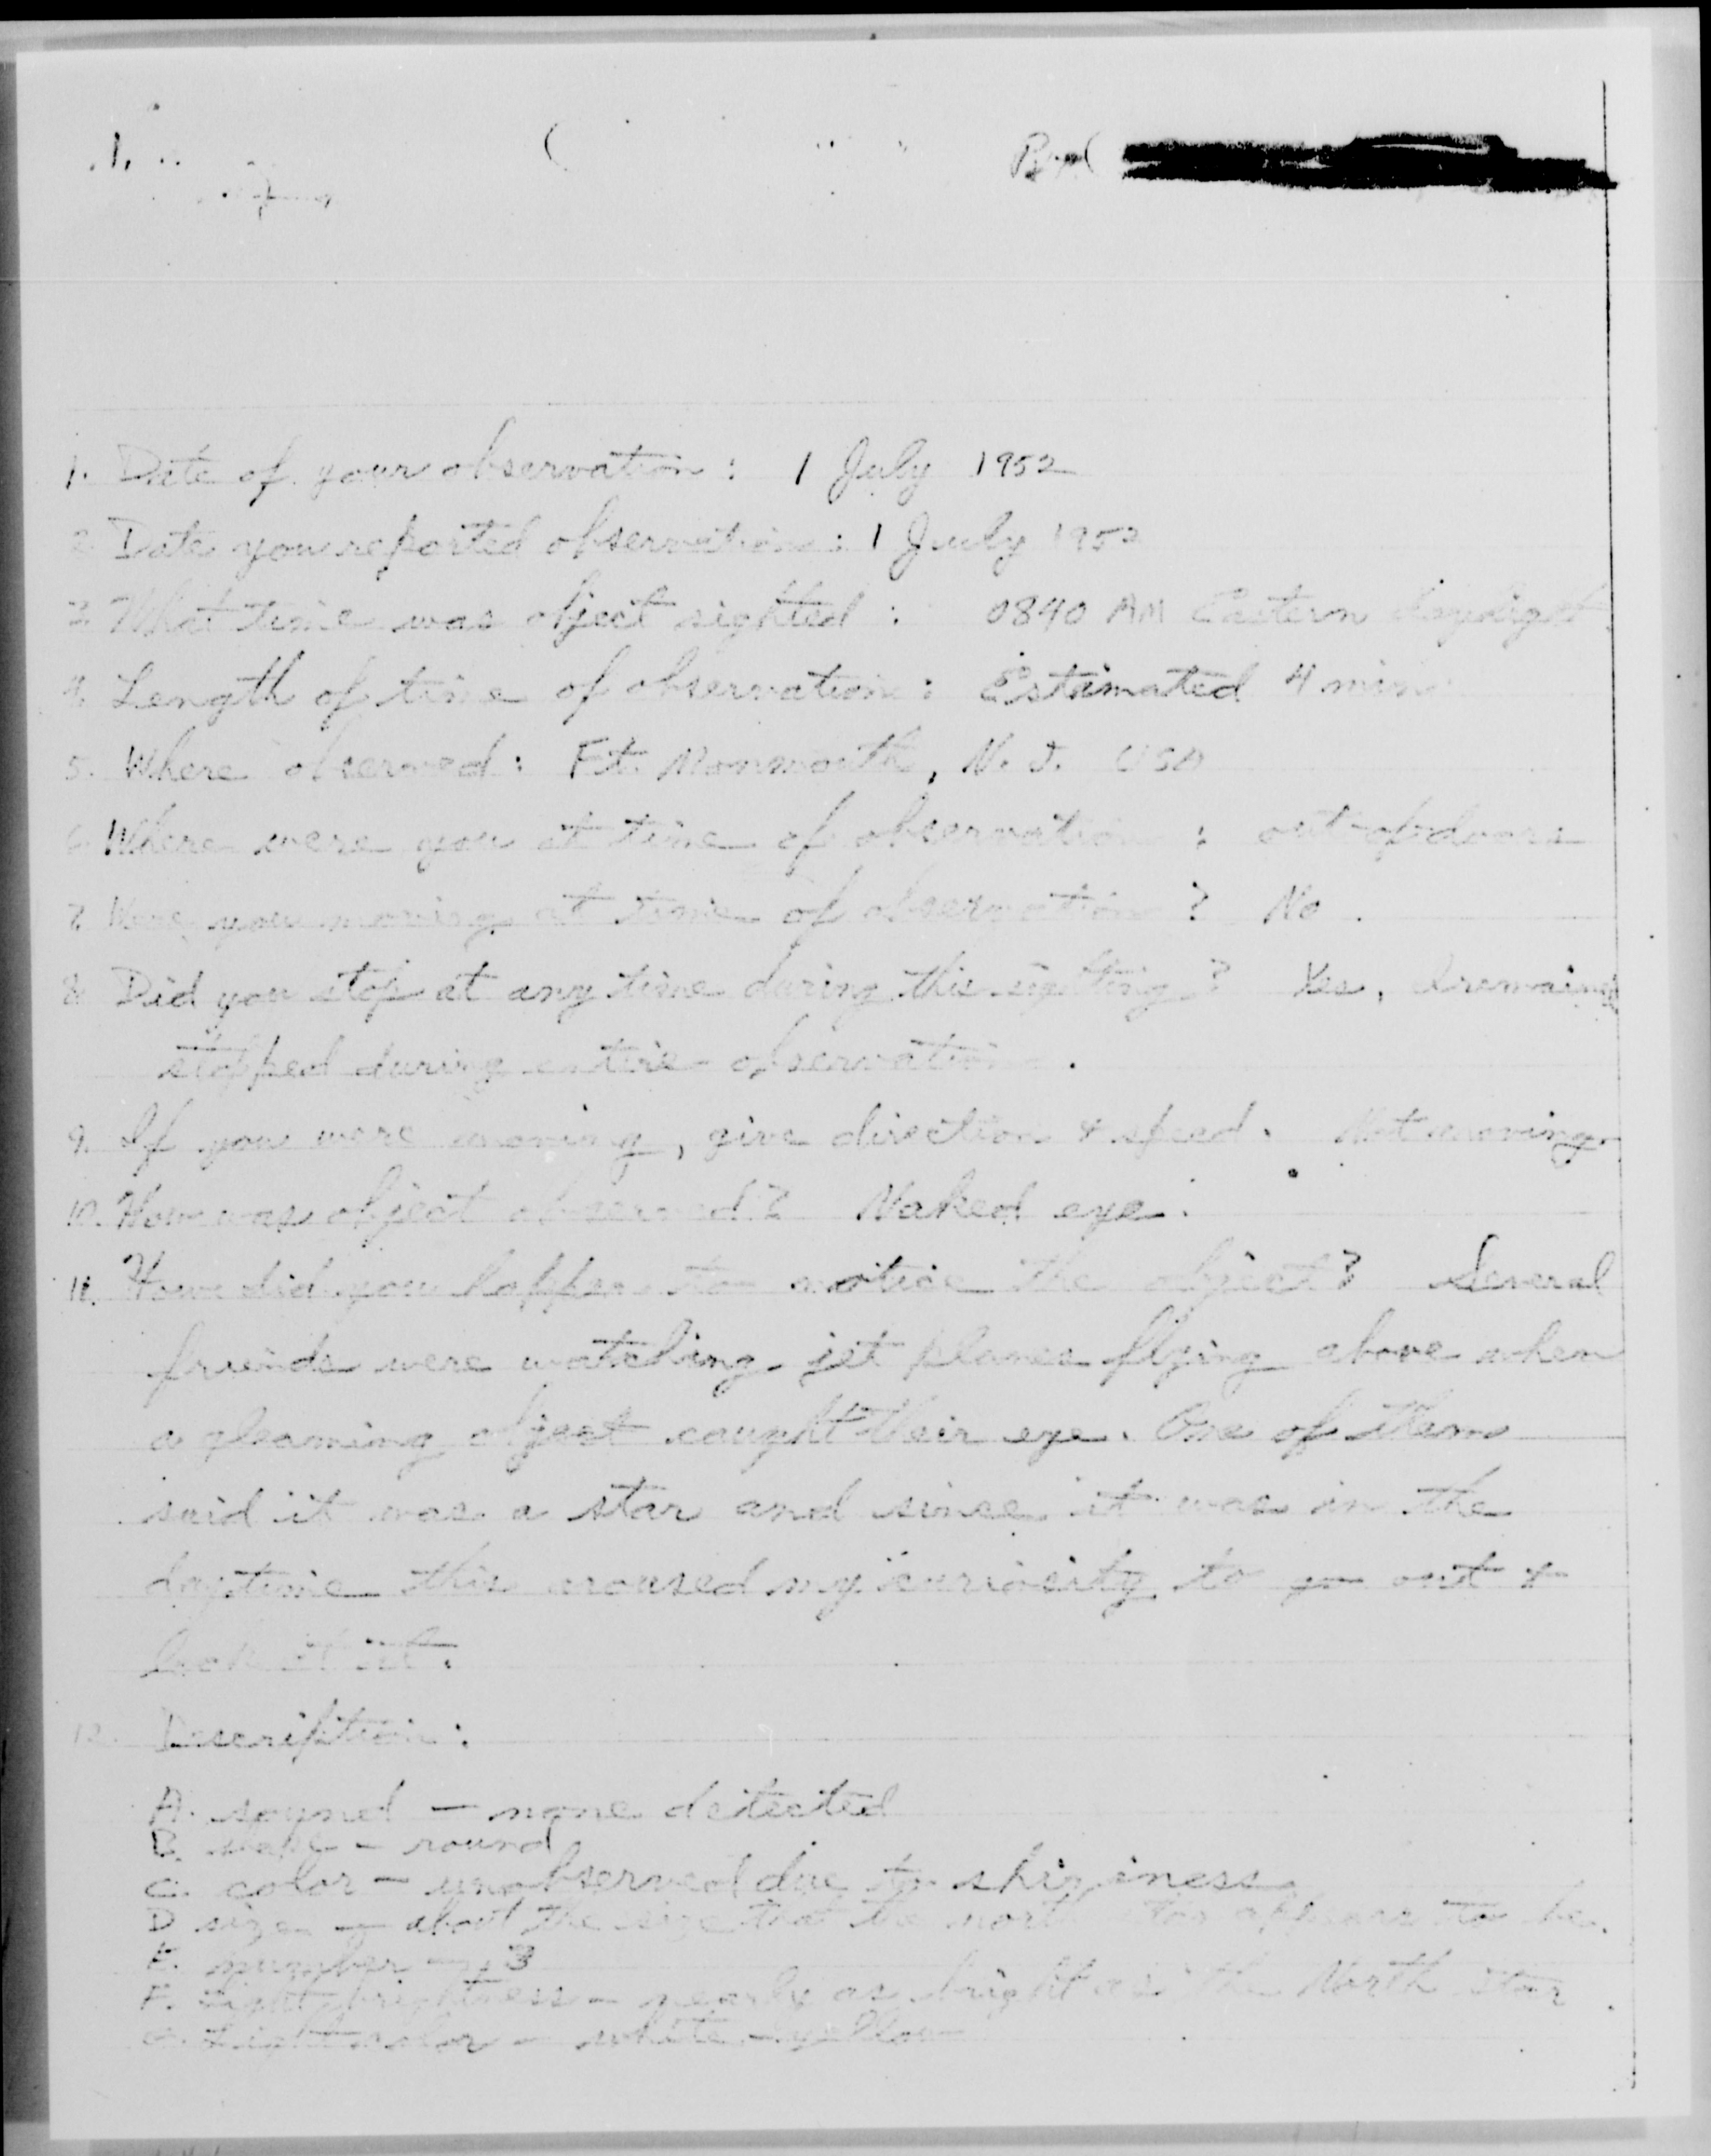 1.
1. Date of your observation: 1 July 1952
2. Date you reported observation: 1 July 1952
3. What time was object sighted: 0840 AM Eastern daylight
4. Length of time of observation: Estimated 4 min
5. Where observed: Ft. Monmouth, N. J. USA
6. Where were you at time of observation: out of doors
7. Were you moving at time of observation? No.
8. Did you stop at any time during this sighting? Yes, I remained
stopped during entire observation.
9. If you were moving, give direction & speed. Not moving.
10. How was object observed? Naked eye.
11. How did you happen to notice the object? Several
friends were watching jet planes flying above when
a gleaming object caught their eye. One of them
said it was a star and since it was in the
daytime this aroused my curiosity to go out &
look at it.
12. Description:
A. sound - none detected
B. shape - round
C. color - unobserved due to shininess
D. size - about the size that the north star appears to be.
E. number - 3
F. Light brightness - nearly as bright as the North star
G. Light color - white - yellow